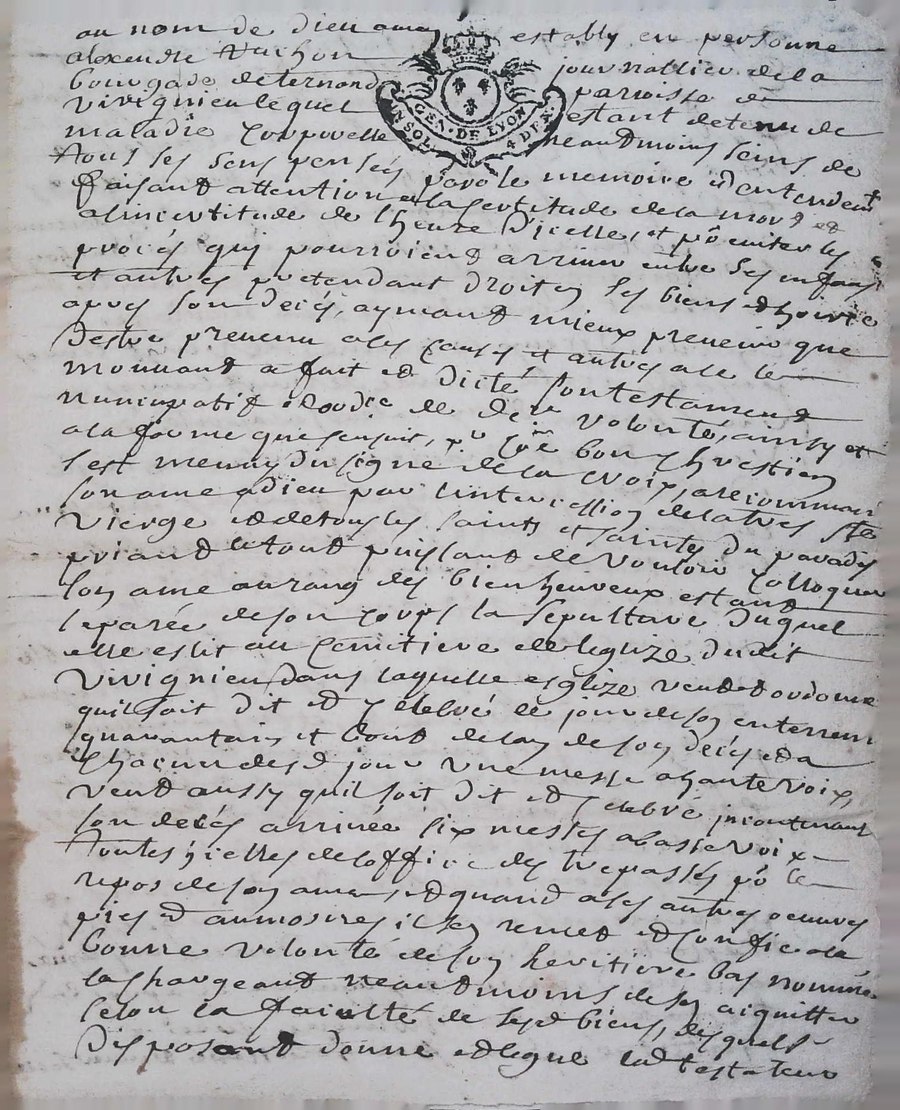 au nom de dieu amen establÿ en personne
alexendre journallier de la
bourgade de ternand paroisse de
vivignieu lequel estant detenu de
GEN · DE LYON
UN SOL 4 DEN
maladie corporelle neaudmoins seins de
tous ses sens pensés parole memoire et entendemt
faisant attention a la sertitude de la mort et
a lincertitude de lheure dicelle, et po eviter les
procés qui pourroient arriver entre ses enfans
et autres pretendant droit en ses biens et hoirie
apres son decés, aymant mieux prevenir que
destre prevenu a ses causes et autres a ce le
mouvant a fait et dicté son testament
nuncupatif et ordre de derre volonté, ainsy et
a la forme que sensuit, po comme bon chrestien
sest meuny du signe de la croix, a recommandé
son ame a dieu par lintercession de la tres ste
vierge et de tous les saints et saintes du paradis
priant le tout puissant de vouloir colloquer
son ame au rang des bienheureux estant
separée de son corps la sepulture duquel
elle eslit au cemitiere de leglize dudit
vivignieu dans laquelle esglize veut et ordonne
quil soit dit et celebré le jour de son enterremt
quarantain et bout de lan de son decés et a
chacun desd jour une messe a haute voix,
veut aussy quil soit dit et celebré incontinant
son decés arrivée six messes a basse voix
toutes icelles de loffice des trepassés po le
repos de son ame, et quand a ses autres oeuvres
pies et aumosnes il sen remet et confie a la
bonne volonté de son heritiere bas nommée
la chargeant neaudmoins de sen aiquitter
selon la faculté de sesd biens, desquels
disposant donne et legue led testateur